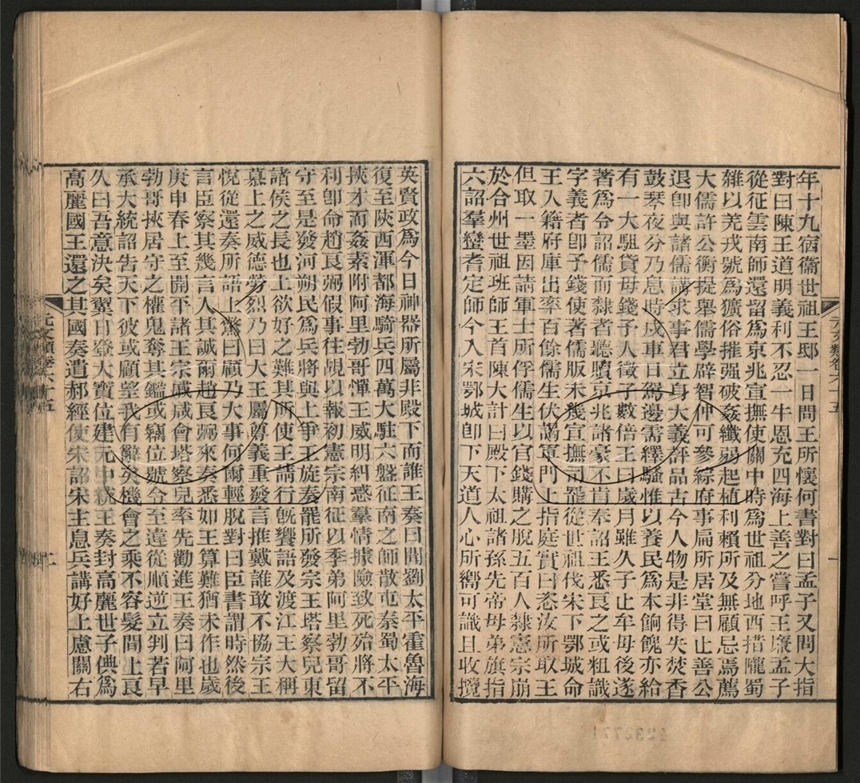 年十九宿衛世祖王邸一日問王所懷何書對曰孟子又問大指
對曰陳王道明義利不忍一牛恩充四海上善之嘗呼王廉孟子
從征雲南師還留爲京兆宣撫使關中時爲世祖分地西措隴蜀
雜以羌戎號爲獷俗摧强破姦纖弱起植利賴所及無顧忌焉薦
大儒許公衡提舉儒學辟智仲可參綜府事扁所居堂曰止善公
退卽與諸儒講求事君立身大義評品古今人物是非得失焚香
鼓琴夜分乃息時戍車日駕邊需繹騷惟以養民爲本餉餽亦給
有一大駔貸母錢子人徵子數倍王曰歲月雖久子止牟母後遂
著爲令詔儒而隸者聽贖京兆諸豪不肯奉詔王悉良之或粗識
字義者卽予錢使著儒版未幾宣撫司罷從世祖伐宋下鄂城命
王入籍府庫出率百餘儒生伏謁軍門上指庭實曰恣汝所取王
但取一墨因請軍士所俘儒生以官錢購之脫五百人隸憲宗崩
於合州世祖班師王首陳大計曰殿下太祖諸孫先帝母弟旗指
六詔羣蠻耆定師今入宋鄂城卽下天道人心所嚮可識且收攬
英賢政爲今日神器所屬非殿下而誰王奏曰聞劉太平霍魯海
復至陝西渾都海騎兵四萬大駐六盤征南之師散屯秦蜀太平
挾才而姦素附阿里勃哥憚王威明糾惑羣情據險致死殆將不
利卽命趙良弼假事往覘以報初憲宗南征以季弟阿里勃哥留
守至是發河朔民爲兵將與上爭王旋奏罷所發宗王塔察兒東
諸侯之長也上欲好之難其所使王請行旣饗語及渡江王大稱
慕上之威德勞烈乃曰大王屬尊義重發言推戴誰敢不協宗王
悅從還奏所語上驚曰顧乃大事何爾輕脫對曰臣書謂時然後
言臣察其幾言人其誠爾趙良弼來奏悉如王算難猶未作也歲
庚申春上至開平諸王宗戚咸會塔察兒率先勸進王奏曰阿里
勃哥挾居守之權鬼奪其鑑或竊位號令至違從順逆立判若早
承大統詔告天下彼或顧望我有辭矣機會之乘不容髮間上良
久曰吾意決矣翼日登大寶位建元中統王奏封高麗世子倎爲
高麗國王還之其國奏遣郝經使宋詔宋主息兵講好上慮關右